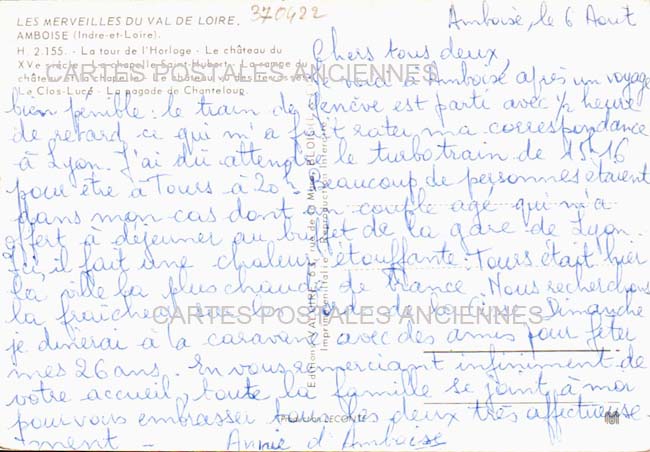 LES MERVEILLES DU VAL DE LOIRE.
AMBOISE (Indre-et-Loire).
H. 2.155. - La tour de l'Horloge - Le château du
XVe siècle - La chapelle Saint-Hubert - La rampe du
château et la chapelle - Le château vu des terrasses
Le Clos-Lucé - La pagode de Chanteloup.
370422
Amboise, le 6 Août
Chers tous deux,
Me voici à Amboise après un voyage
bien pénible : le train de Genève est parti avec 1/2 heure
de retard ce qui m'a fait rater ma correspondance
à Lyon. J'ai dû attendre le turbotrain de 15h16
pour être à Tours à 20h. Beaucoup de personnes étaient
dans mon cas dont un couple agé qui m'a
offert à déjeuner au buffet de la gare de Lyon.
Ici il fait une chaleur étouffante. Tours était hier
la ville la plus chaude de France. Nous recherchons
la fraîcheur sur les bords de la Cisse. Dimanche
je dînerai à la caravane avec des amis pour fêter
mes 26 ans. En vous remerciant infiniment de
votre accueil, toute la famille se joint à moi
pour vous embrasser tous les deux très affectueuse-
ment -
Annie d'Amboise
Editions VALOIRE, rue de la BLOIS
Imprimé Reproduction interdite
Production LECONTE
CARTES POSTALES ANCIENNES
CARTES POSTALES ANCIENNES